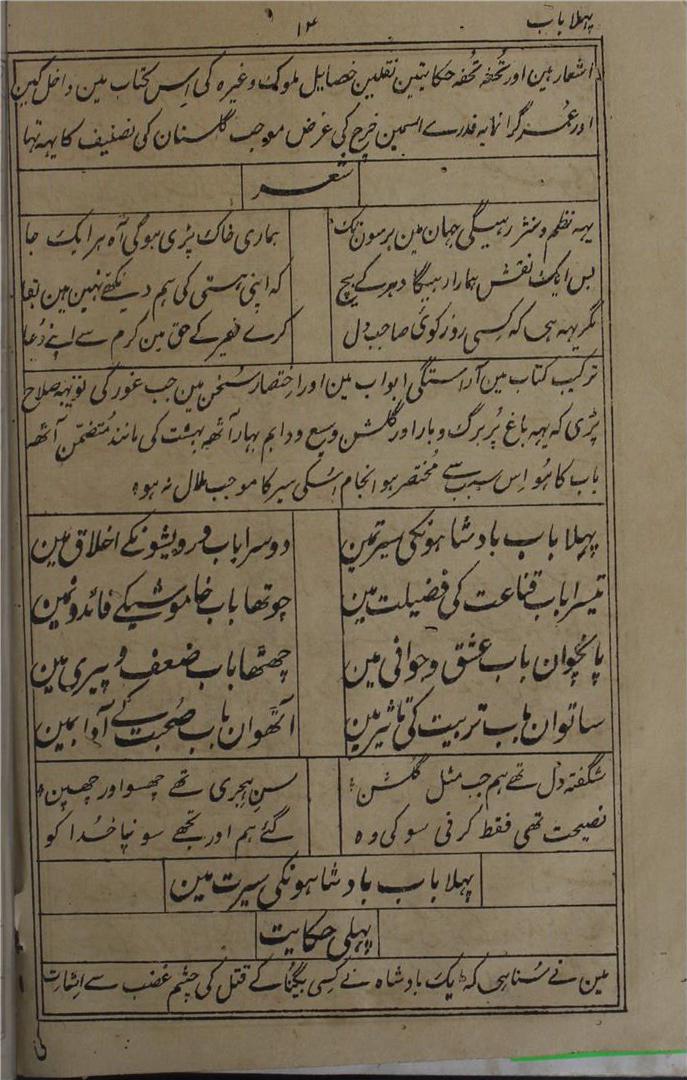 پہلا باب
۱۴
اشعار ہین اور تحفہ تحفہ حکایتین نقلین خصایل ملوک وغیرہ کی اس کتاب مین داخل کین
اور عمر گرانمایہ قدرے اسمین خرچ کی غرض موجب گلستان کی تصنیف کا یہہ تہا
شعر
یہہ نظم و نثر رہیگی جہان مین برسون تک ہماری خاک پڑی ہوگی آہ ہر ایک جا
بس ایک نقش ہمارا رہیگا دہر کے بیچ کہ اپنی ہستی کی ہم دیکھتے نہین ہین بقا
مگر یہہ ہی کہ کسی روز کوئی صاحب دل کرے فقیر کے حق مین کرم سے اپنے دُعا
ترکیب کتاب مین آراستگی ابواب مین اور اختصار سخن مین جب غور کی تو یہہ صلاح
پڑی کہ یہہ باغ پُر برگ و بار اور گلشن وسیع و دایم بہار آٹھ بہشت کی مانند متضمن آٹھہ
باب کا ہو اِس سبب سے مختصر ہو انجام اسکی سیر کا موجب ملال نہ ہو
پہلا باب بادشاہونکی سیرتمین دوسرا باب درویشونکے اخلاق مین
تیسرا باب قناعت کی فضیلت مین چوتھا باب خاموشیکے فائدونمین
پانچوان باب عشق و جوانی مین چھٹھا باب ضعف و پیری مین
ساتوان باب تربیت کی تاثیر مین آٹھوان باب صحبت کے آدابمین
شگفتہ دل تھے ہم جب مثل گلشن سن ہجری تھے چھسو اور چھپن
نصیحت تھی فقط کرنی سو کی وہ گئے ہم اور تجھے سونپا خدا کو
پہلا باب بادشاہونکی سیرت مین
پہلی حکایت
مین نے سُنا ہی کہ ایک بادشاہ نے کسی بیگناہ کے قتل کی چشم غضب سے اِشارت
کی